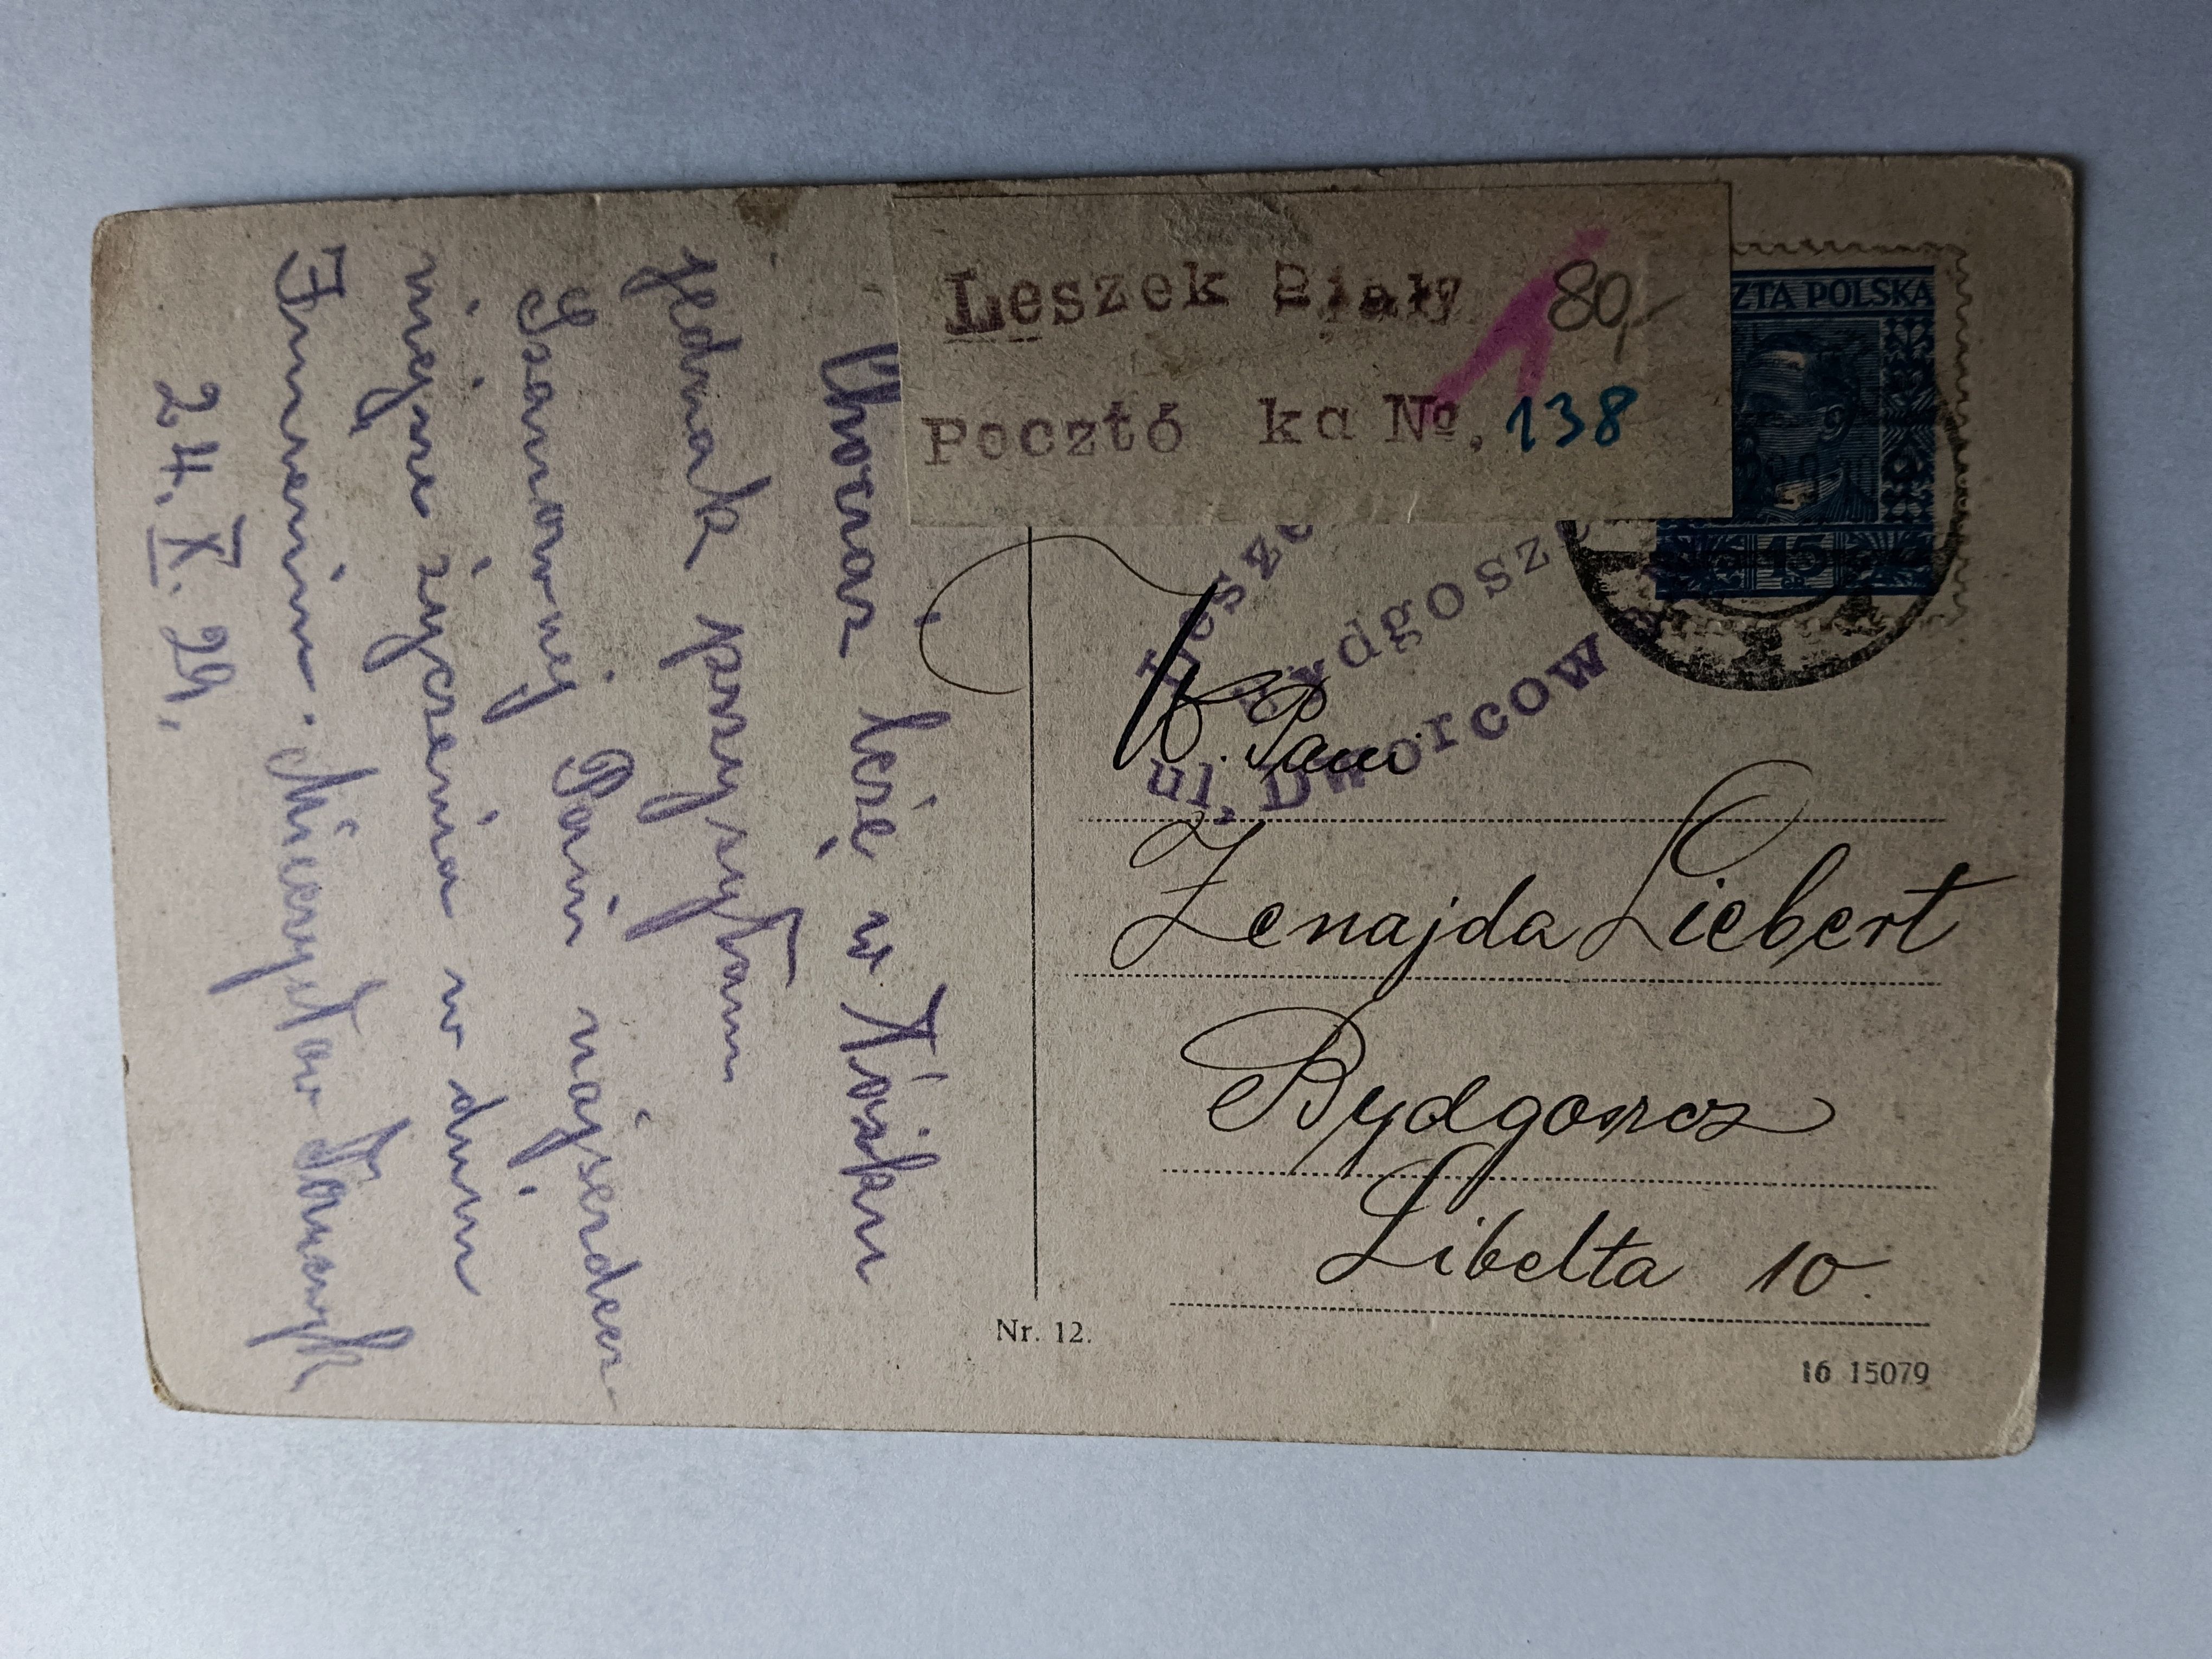 Chociaż leżę w łóżku
jednak przysyłam
Szanownej Pani najserdecz-
niejsze życzenia w dniu
Imienin. Mieczysław
24. X. 29.
Leszek Biały 80,-
Pocztó ka №. 138
ZTA POLSKA
15
Lesze
Bydgoszc
ul. Dworcow
W. Pani
Zenajda Liebert
Bydgoszcz
Libelta 10.
Nr. 12.
16 15079